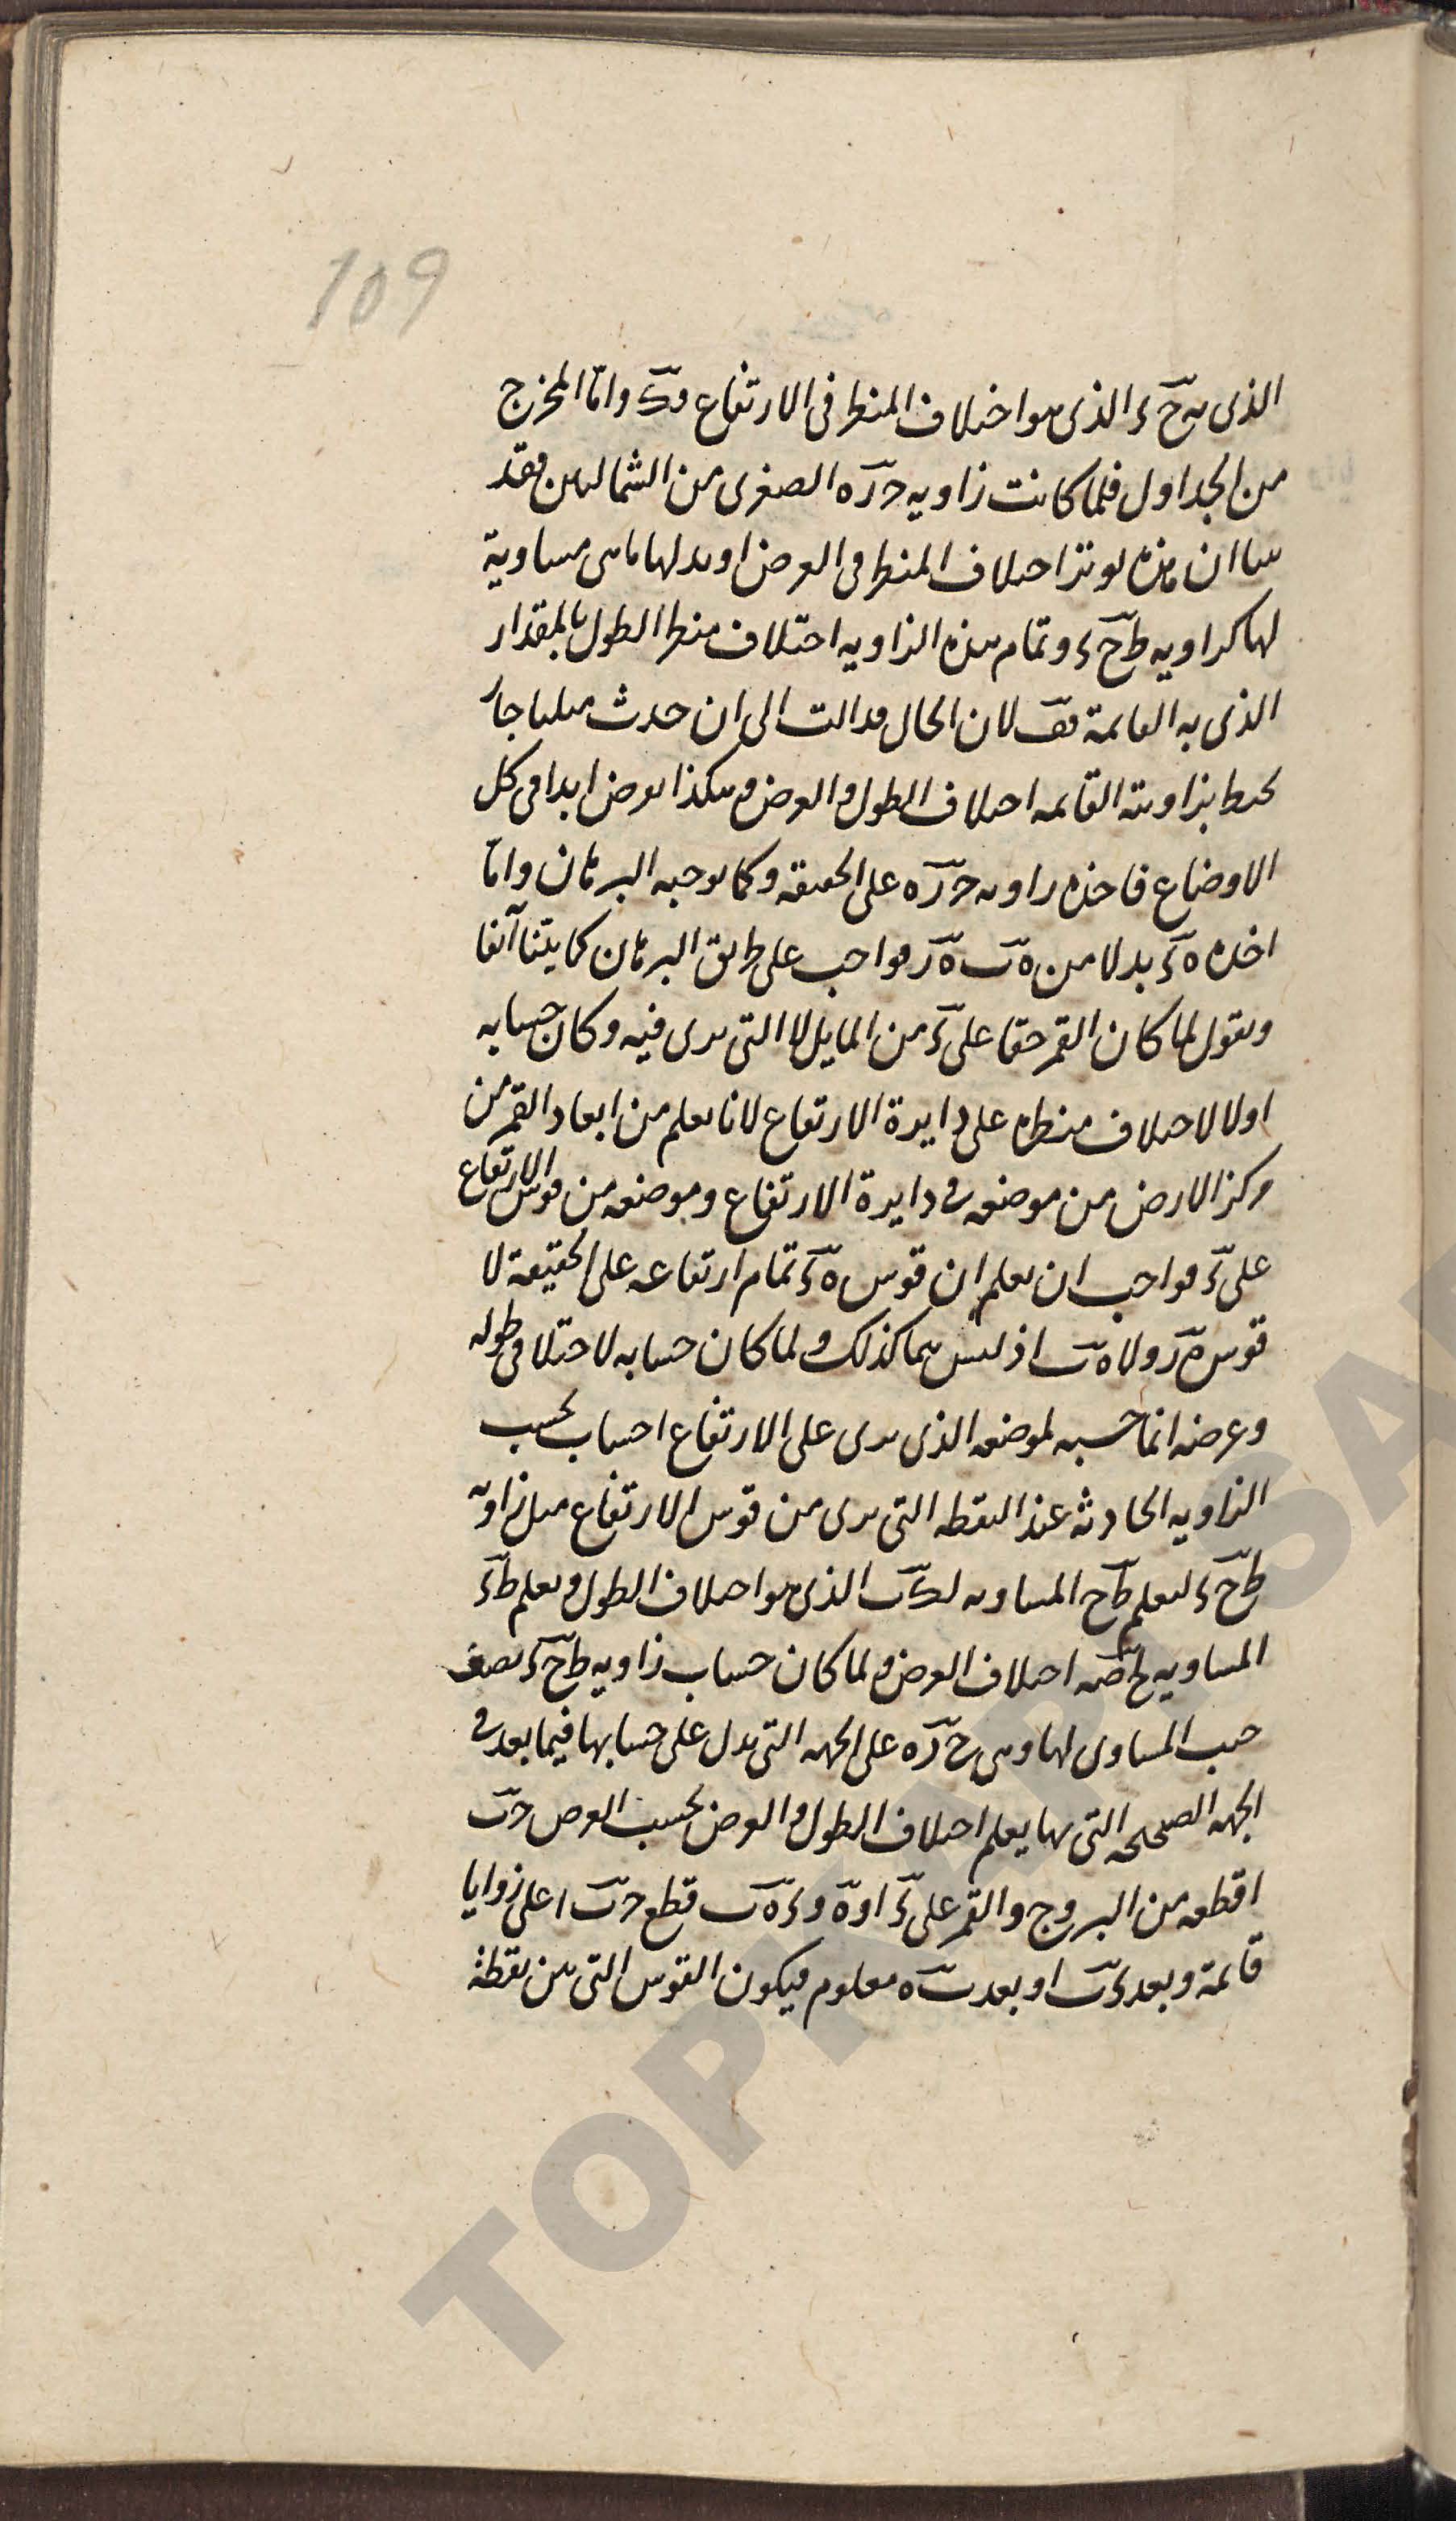 109
الذى به حَ ى الذى هو اختلاف المنظر فى الارتفاع وكَ واما المخرج
من الجداول فلما كانت زاويه حرَه الصغرى من الشماليين فقد
بينا ان هذه توتر اختلاف المنظر فى العرض او بدلها ما هى مساوية
لها كزاويه طحَ ى وتمام هذه الزاويه اختلاف منظر الطول بالمقدار
الذى به القائمة لان الحال قد الت الى ان حدث مثلثا حار
يحيط بزاويته القائمه اختلاف الطول والعرض وهكذا يعرض ابدا فى كل
الاوضاع فاخذه زاويه حرَه على الحقيقه وكما يوجبه البرهان واما
اخذه هَى بدلا من هَب هَر فواجب على طريق البرهان كما بينا آنفا
ونقول لما كان القمر حقا على ىَ من المايل لا التى يرى فيه وكان حسابه
اولا لاختلاف منظره على دايرة الارتفاع لانا نعلم من ابعاد القمر من
مركز الارض من موضعه فى دايرة الارتفاع وموضعه من قوس الارتفاع
على ىَ فواجب ان نعلم ان قوس هَى تمام ارتفاعه على الحقيقة لا
قوس هَر ولا هَب اذ ليس هما كذلك ولما كان حسابه لاختلاف طوله
وعرضه انما حسبه لموضعه الذى يرى على الارتفاع احساب بحسب
الزاويه الحادثه عند النقطه التى يرى من قوس الارتفاع مثل زاويه
طحَ ى ليعلم طَح المساويه لكَب الذى هو اختلاف الطول ويعلم طَى
المساويه اختلاف العرض ولما كان حساب زاويه طحَى نصف
حسب المساوى لها وهى حرَه على الجهه التى يدل على حسابها فيما بعد فى
الجهه الصحيحه التى بها يعلم اختلاف الطول والعرض بحسب العرض حَب
ا قطعه من البروج والقمر على ىَ اوهَ وىَ هَب قطع حَب ا على زوايا
قائمة وبعد ىَب او بعد بَه معلوم فيكون القوس التى من نقطة